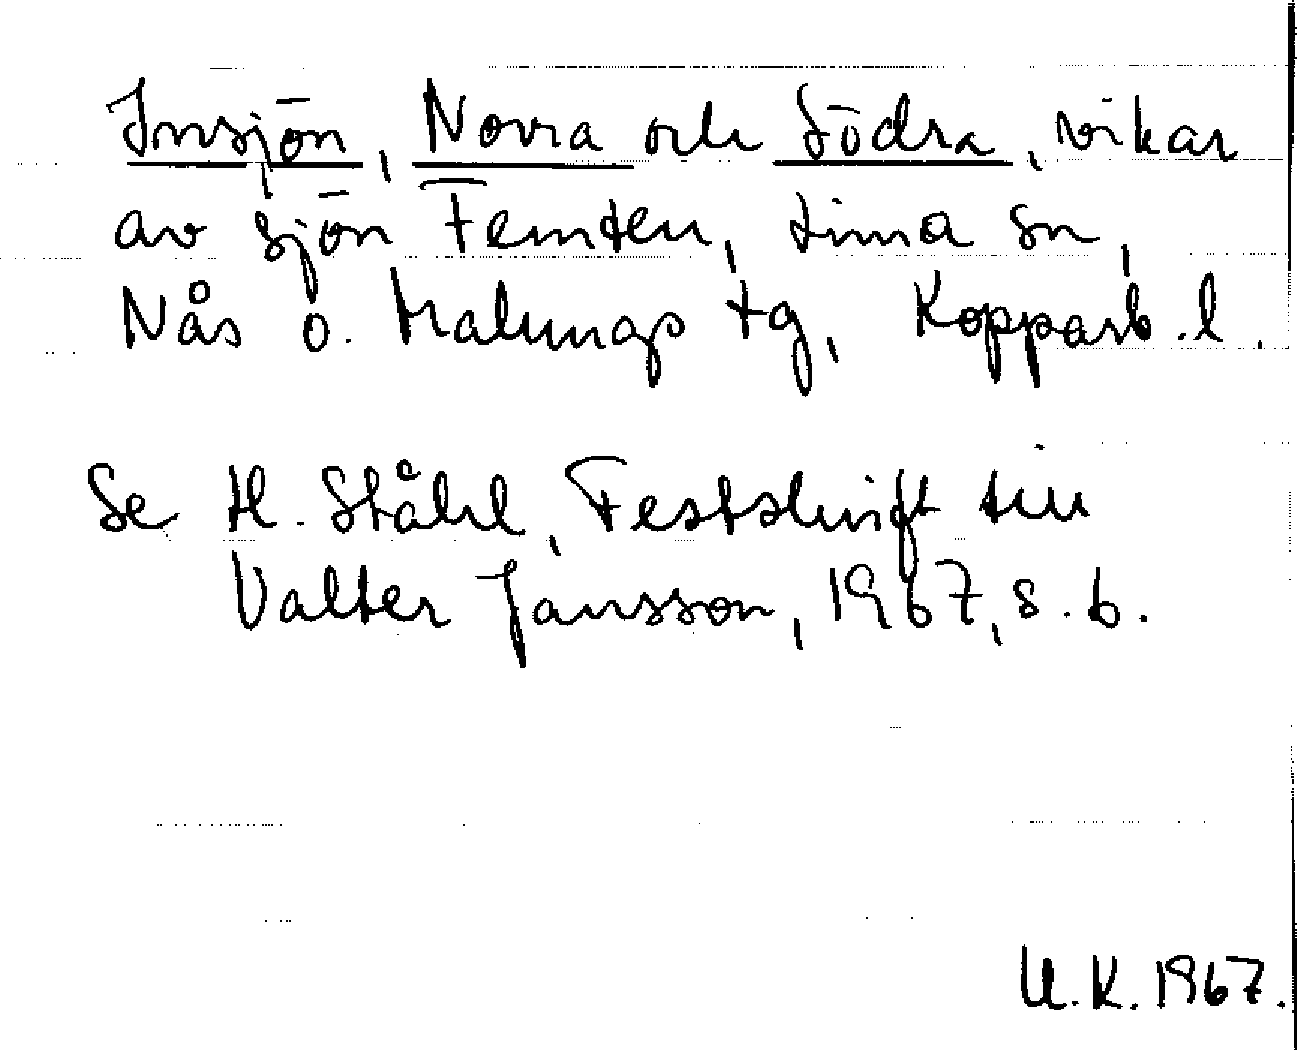 Insjön, Norra och Södra, vikar
av sjön Femten, Lima sn,
Nås o. Malungs tg, Kopparb.l.
Se H. Ståhl, Festskrift till
Valter Jansson, 1967, s. 6.
U.K. 1967.